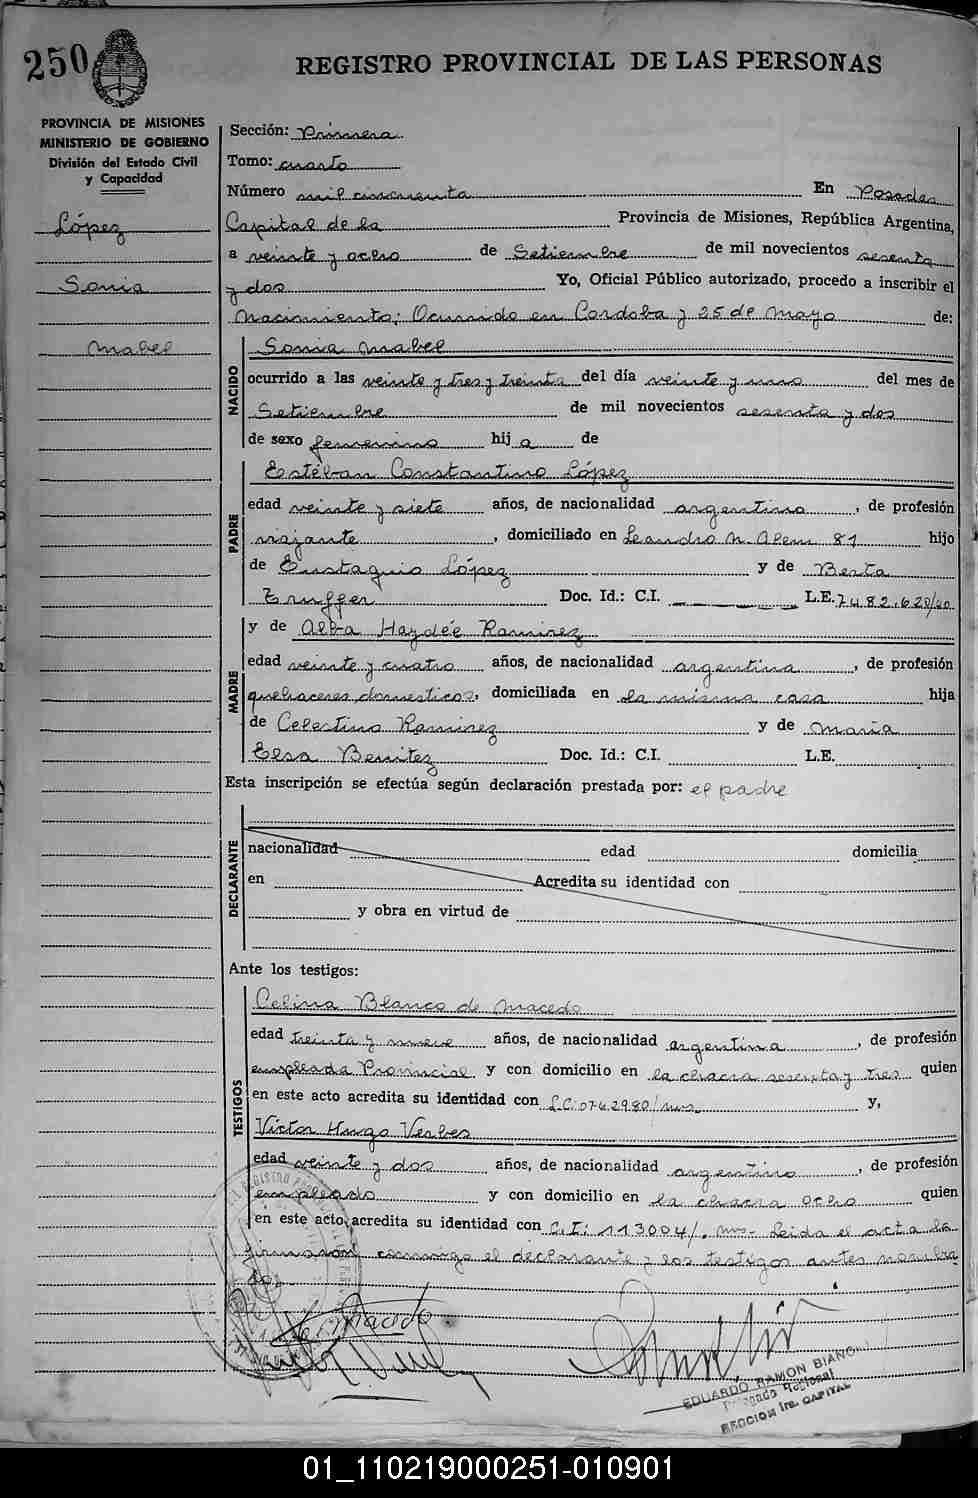 250
REGISTRO PROVINCIAL DE LAS PERSONAS
PROVINCIA DE MISIONES
MINISTERIO DE GOBIERNO
División del Estado Civil
y Capacidad
López
Sonia
Mabel
Sección: Primera
Tomo: cuarto
Número mil cincuenta En Posadas
Capital de la Provincia de Misiones, República Argentina,
a veinte y ocho de Setiembre de mil novecientos sesenta
y dos Yo, Oficial Público autorizado, procedo a inscribir el
Nacimiento; Ocurrido en Cordoba y 25 de Mayo de:
NACIDO
Sonia Mabel
ocurrido a las veinte y tres y treinta del día veinte y uno del mes de
Setiembre de mil novecientos sesenta y dos
de sexo femenino hij a de
PADRE
Estéban Constantino López
edad veinte y siete años, de nacionalidad argentino, de profesión
viajante, domiciliado en Leandro N. Alem 81 hijo
de Eustaquio López y de Berta
Doc. Id.: C.I. L.E. 7.482.620/20
MADRE
y de Alba Haydée Ramirez
edad veinte y cuatro años, de nacionalidad argentina, de profesión
quehaceres domesticos, domiciliada en la misma casa hija
de Celestino Ramirez y de Maria
Elsa Benitez Doc. Id.: C.I. L.E.
Esta inscripción se efectúa según declaración prestada por: el padre
DECLARANTE
nacionalidad edad domicilia
en Acredita su identidad con
y obra en virtud de
Ante los testigos:
TESTIGOS
Celina Blanco de Macedo
edad treinta y nueve años, de nacionalidad argentina, de profesión
empleada Provincial y con domicilio en la chacra sesenta y tres quien
en este acto acredita su identidad con L.C. 0762980/ms. y,
Victor Hugo Verbes
edad veinte y dos años, de nacionalidad argentino, de profesión
empleado y con domicilio en la chacra ocho quien
en este acto, acredita su identidad con C.I: 113004/. ms. Leida el acta la
firmaron conmigo el declarante y los testigos antes nombra
dos
EDUARDO RAMON BIANCHI
Delegado Regional
SECCION 1ra. CAPITAL
01_110219000251-010901